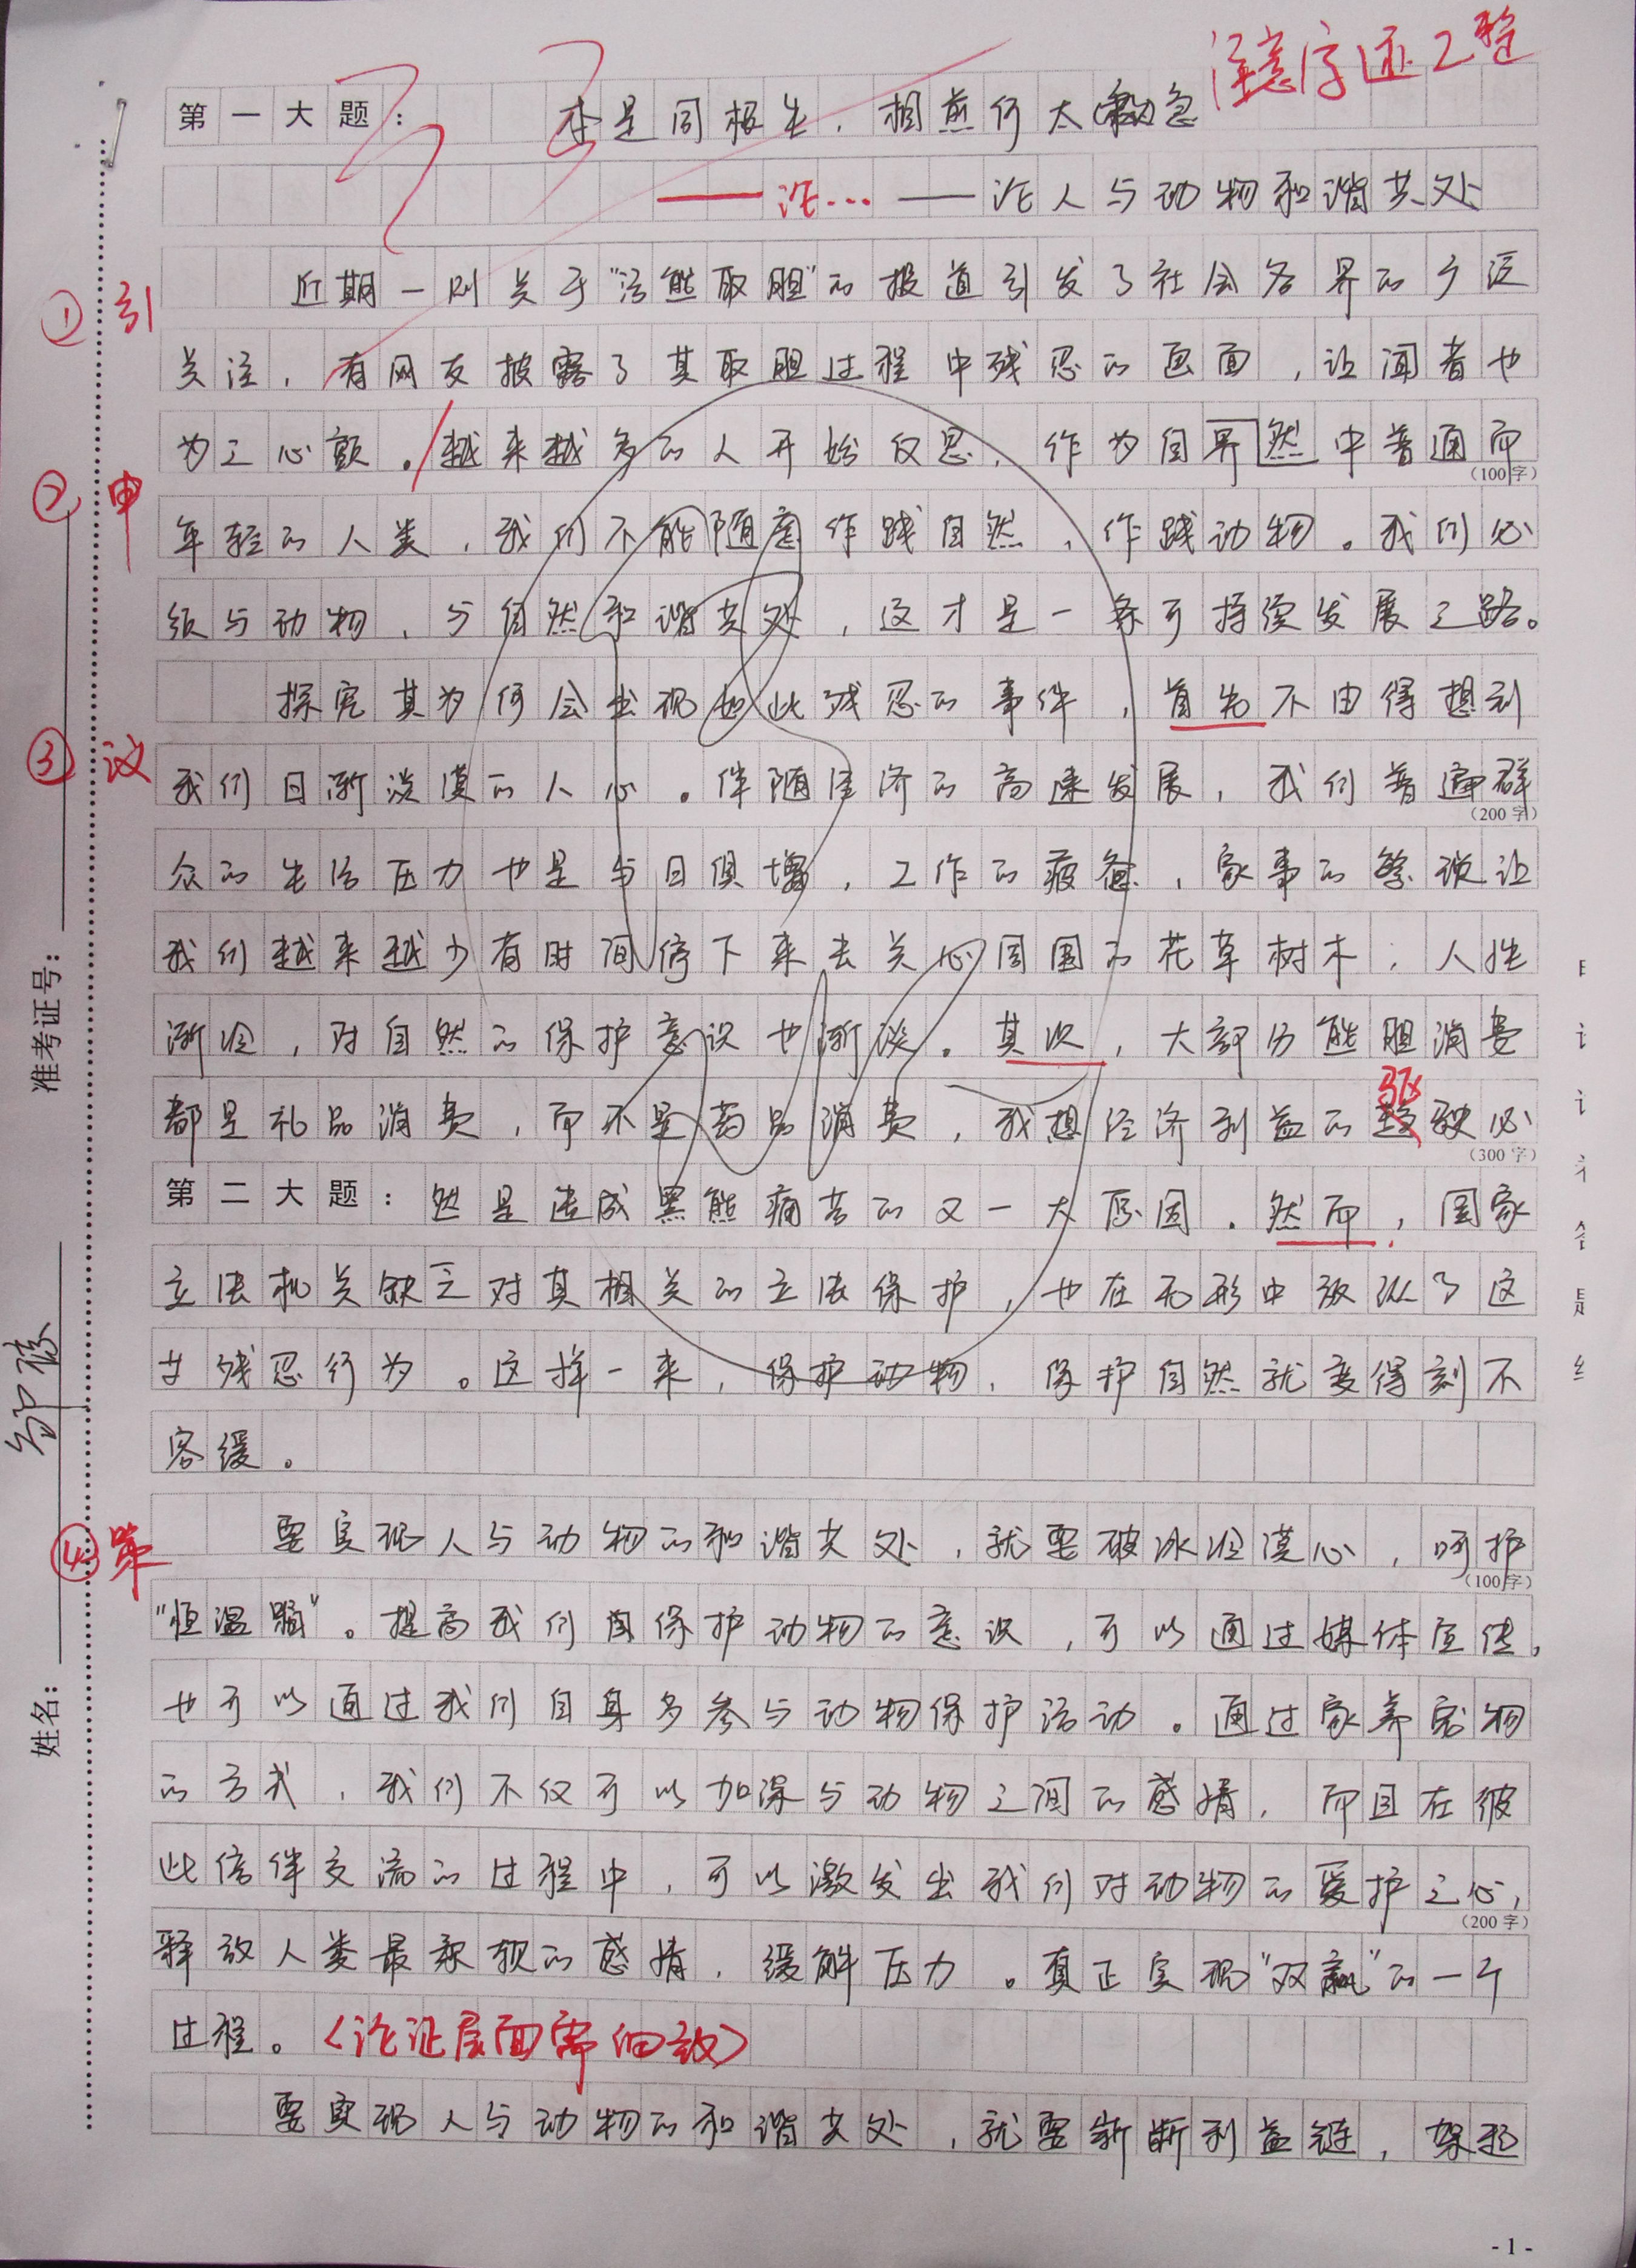 注意字迹工整
第一大题： 本是同根生，相煎何太急
——论… ——论人与动物和谐共处
① 引
近期一则关于“活熊取胆”的报道引发了社会各界的广泛
关注，有网友披露了其取胆过程中残忍的画面，让闻者也
为之心颤。越来越多的人开始反思，作为自界然中普通而
（100字）
② 申
年轻的人类，我们不能随意作践自然，作践动物。我们必
须与动物，与自然和谐共处，这才是一条可持续发展之路。
探究其为何会出现如此残忍的事件，首先不由得想到
③ 议
我们日渐淡漠的人心。伴随经济的高速发展，我们普通群
（200字）
众的生活压力也是与日俱增，工作的疲惫，家事的繁琐让
我们越来越少有时间停下来去关心周围的花草树木，人性
渐冷，对自然的保护意识也渐淡。其次，大部分熊胆消费
都是礼品消费，而不是药品消费，我想经济利益的驱使必
（300字）
第二大题：然是造成黑熊痛苦的又一大原因。然而，国家
立法机关缺乏对其相关的立法保护，也在无形中放纵了这
廿残忍行为。这样一来，保护动物，保护自然就变得刻不
容缓。
④ 策
要实现人与动物的和谐共处，就要破冰冷漠心，呵护
（100字）
“恒温脑”。提高我们自保护动物的意识，可以通过媒体宣传，
也可以通过我们自身多参与动物保护活动。通过家养宠物
的方式，我们不仅可以加深与动物之间的感情，而且在彼
此信伴交流的过程中，可以激发出我们对动物的爱护之心，
（200字）
释放人类最柔软的感情，缓解压力。真正实现“双赢”的一个
过程。（论证层面需细致）
要实现人与动物的和谐共处，就要斩断利益链，架起
准考证号：
姓名：
- 1 -